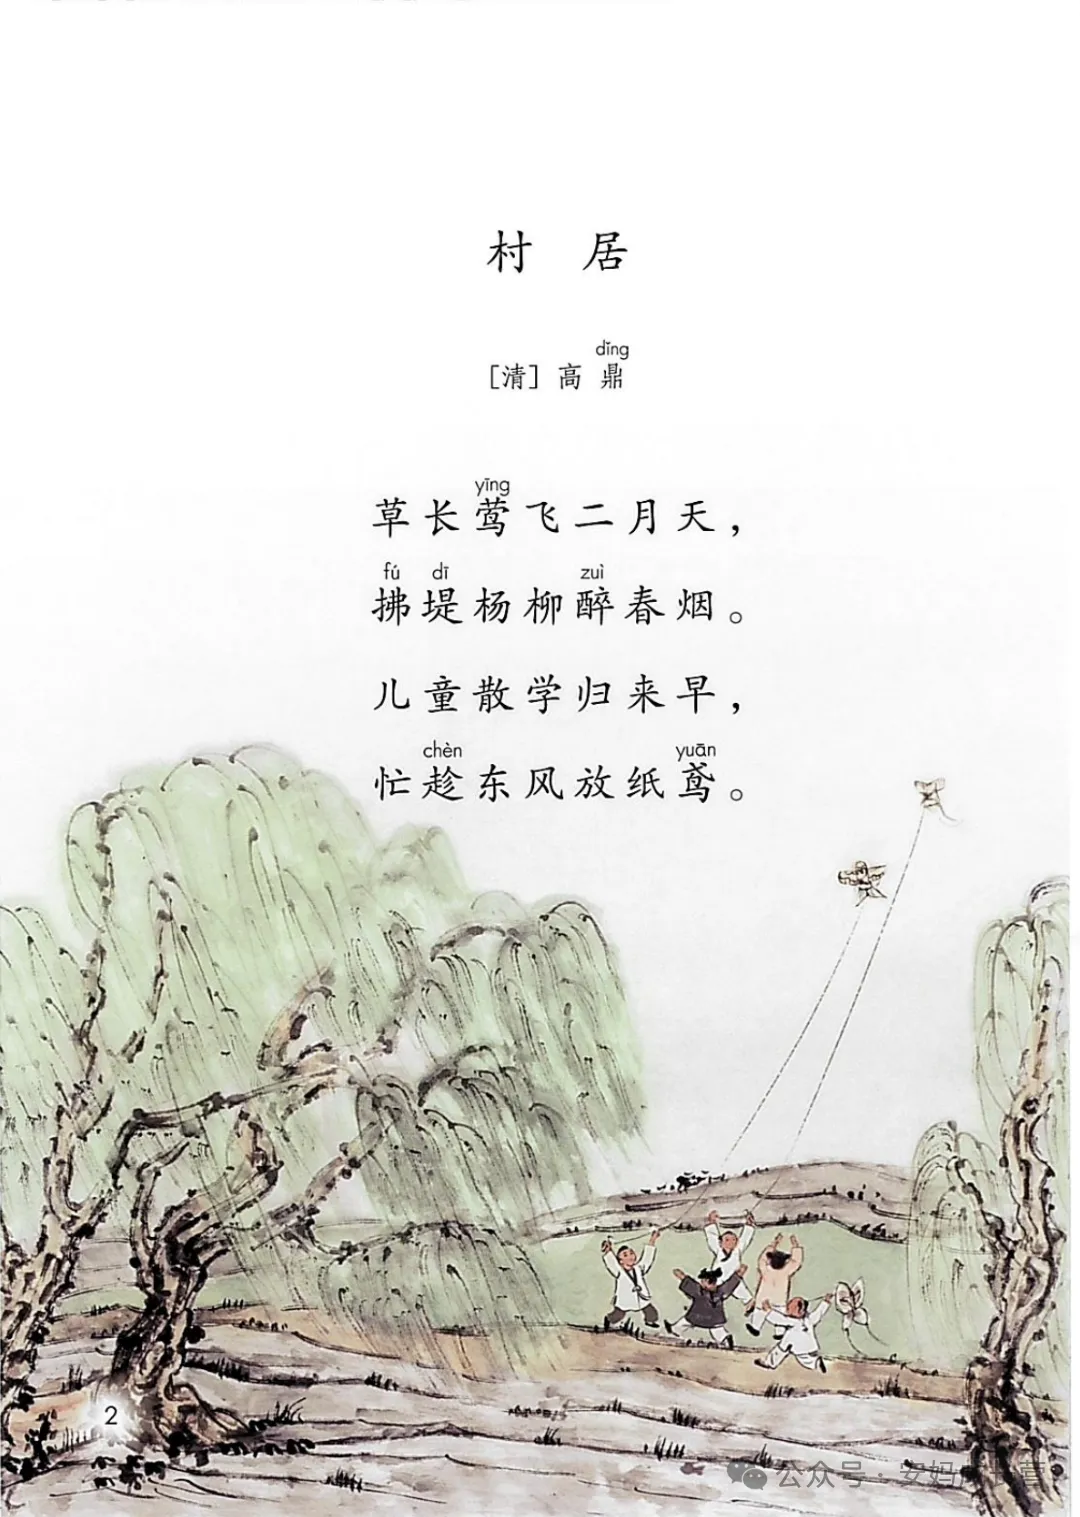 村 居
dǐng
[清] 高 鼎
yīng
草长莺飞二月天，
fú dī zuì
拂堤杨柳醉春烟。
儿童散学归来早，
chèn yuān
忙趁东风放纸鸢。
2
公众号 · 安妈